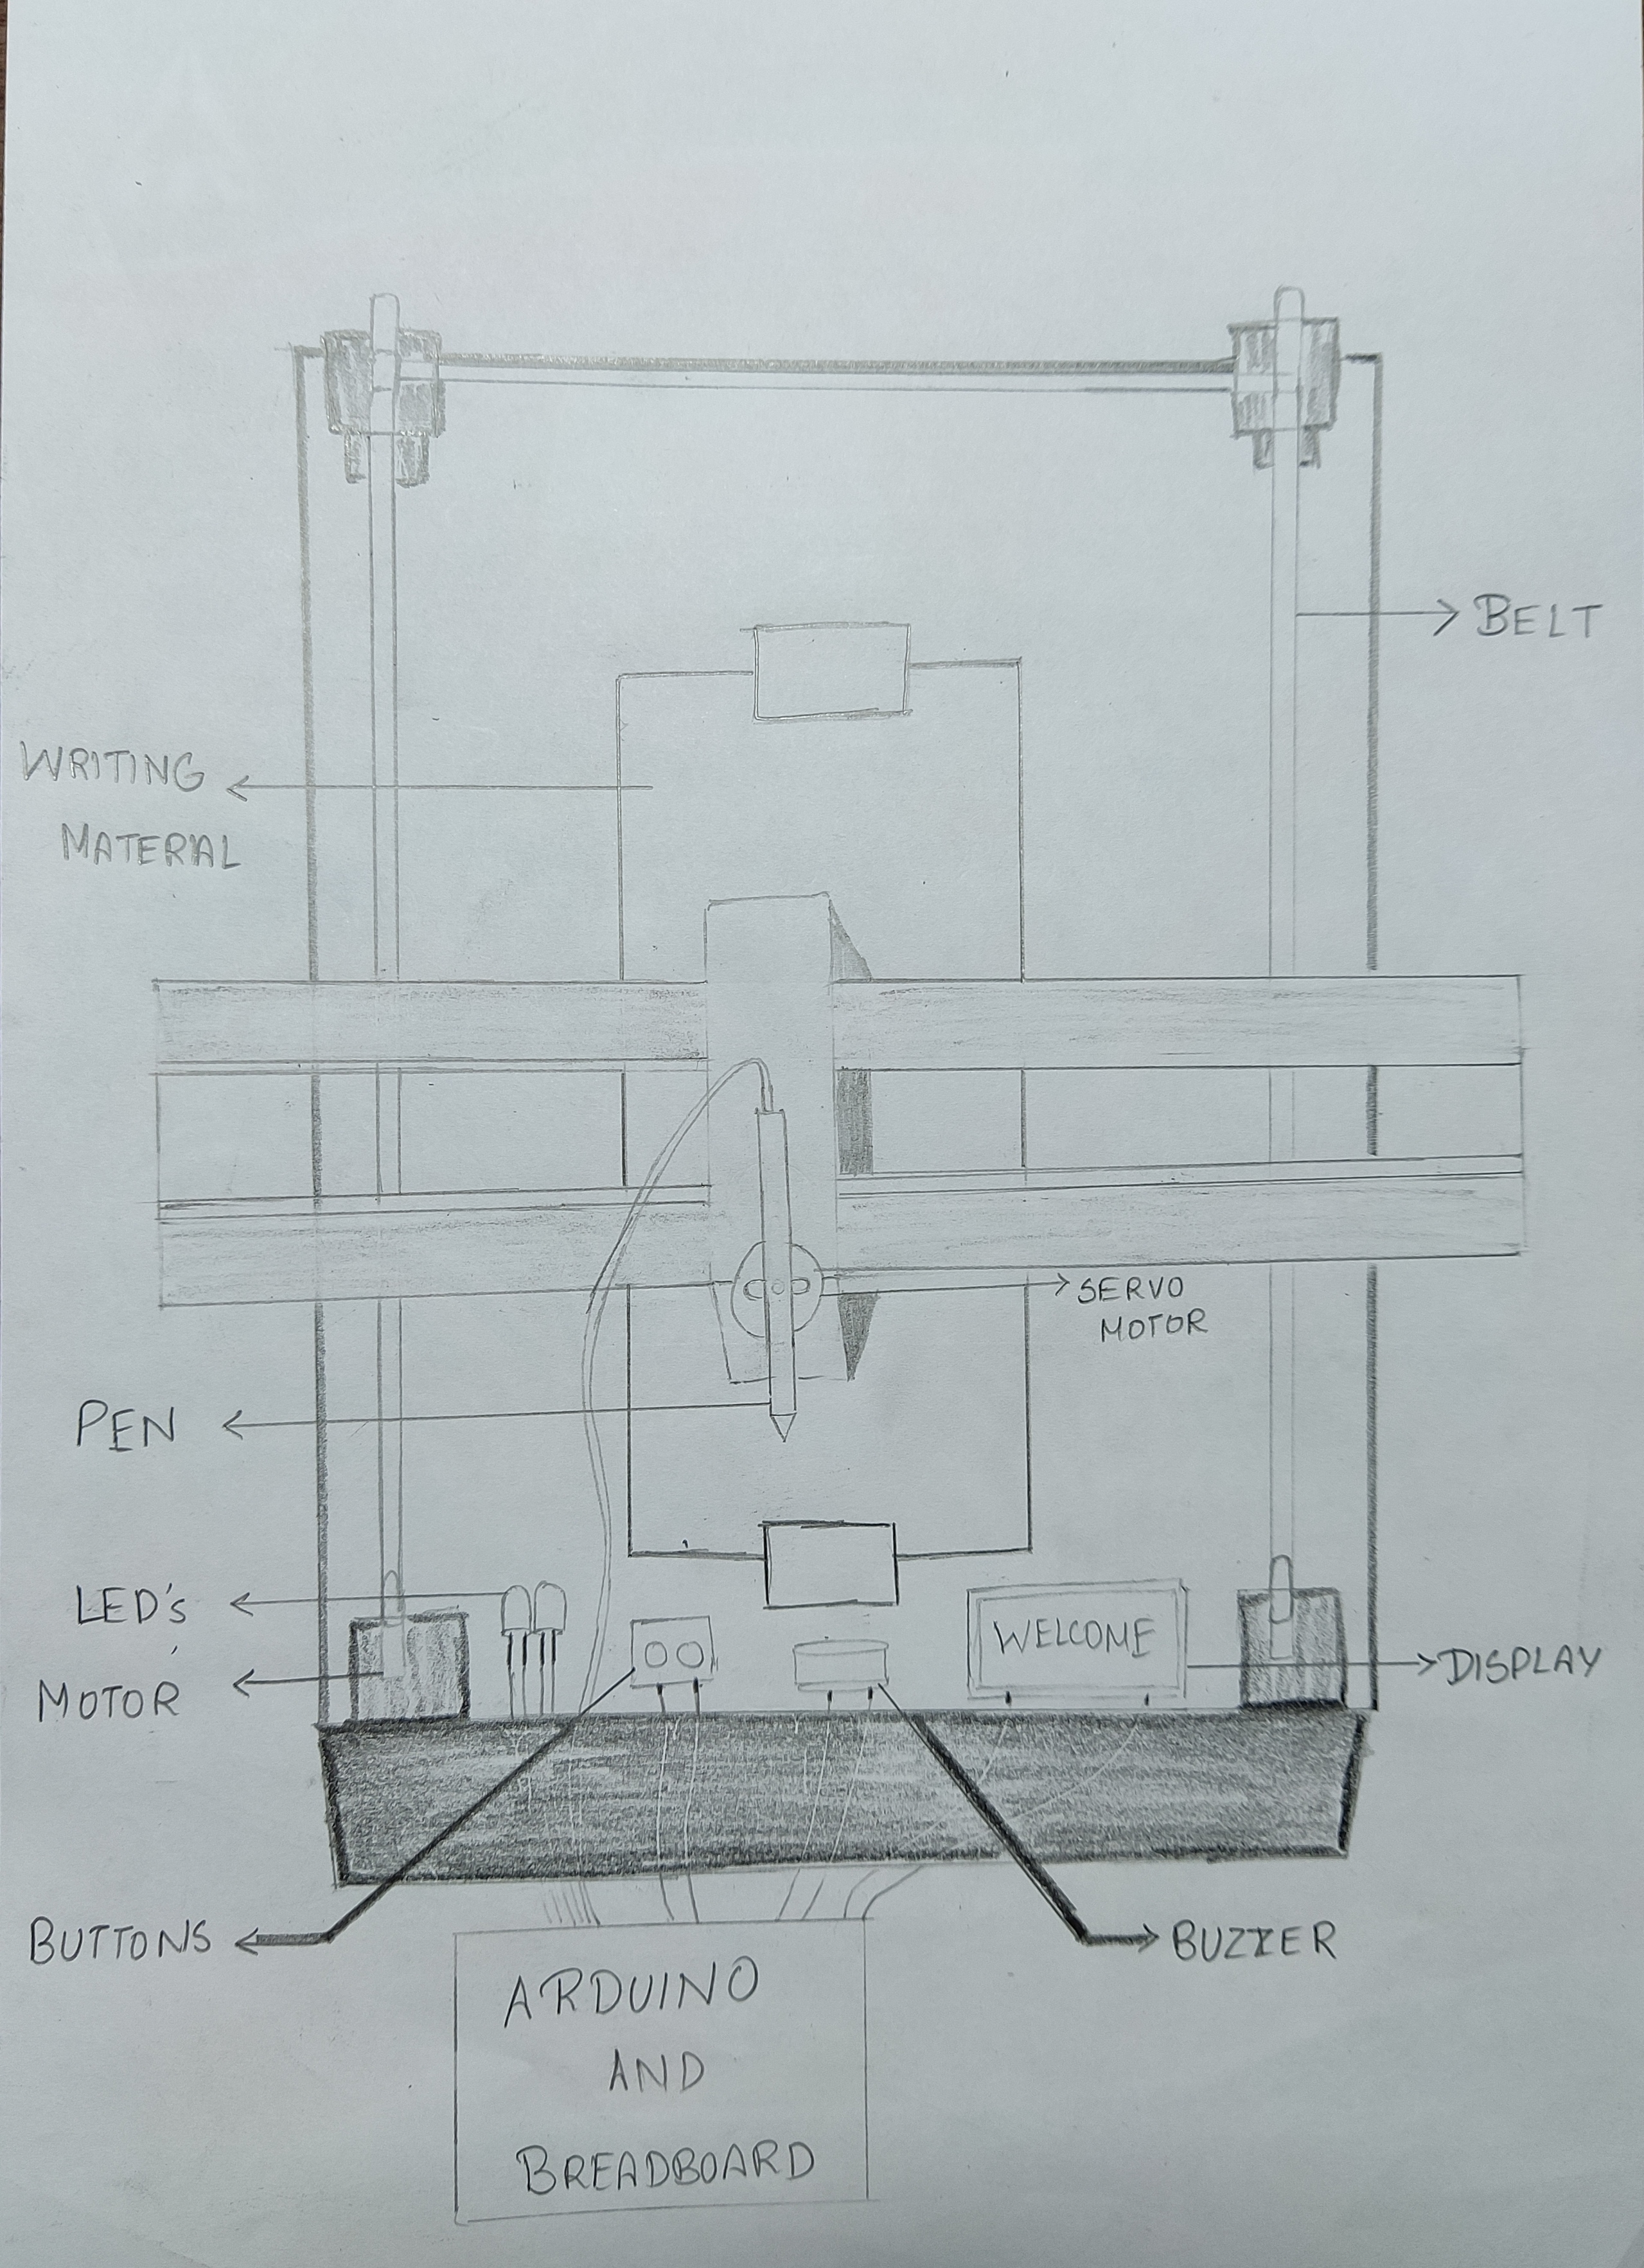 BELT
WRITING
MATERIAL
SERVO
MOTOR
PEN
LED's
WELCOME
DISPLAY
MOTOR
BUTTONS
BUZZER
ARDUINO
AND
BREADBOARD